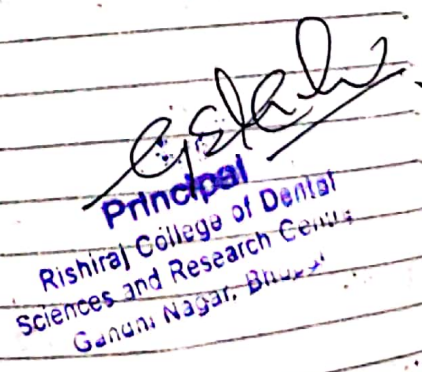 Principal
Rishiraj College of Dental
Sciences and Research Centre
Gandhi Nagar,